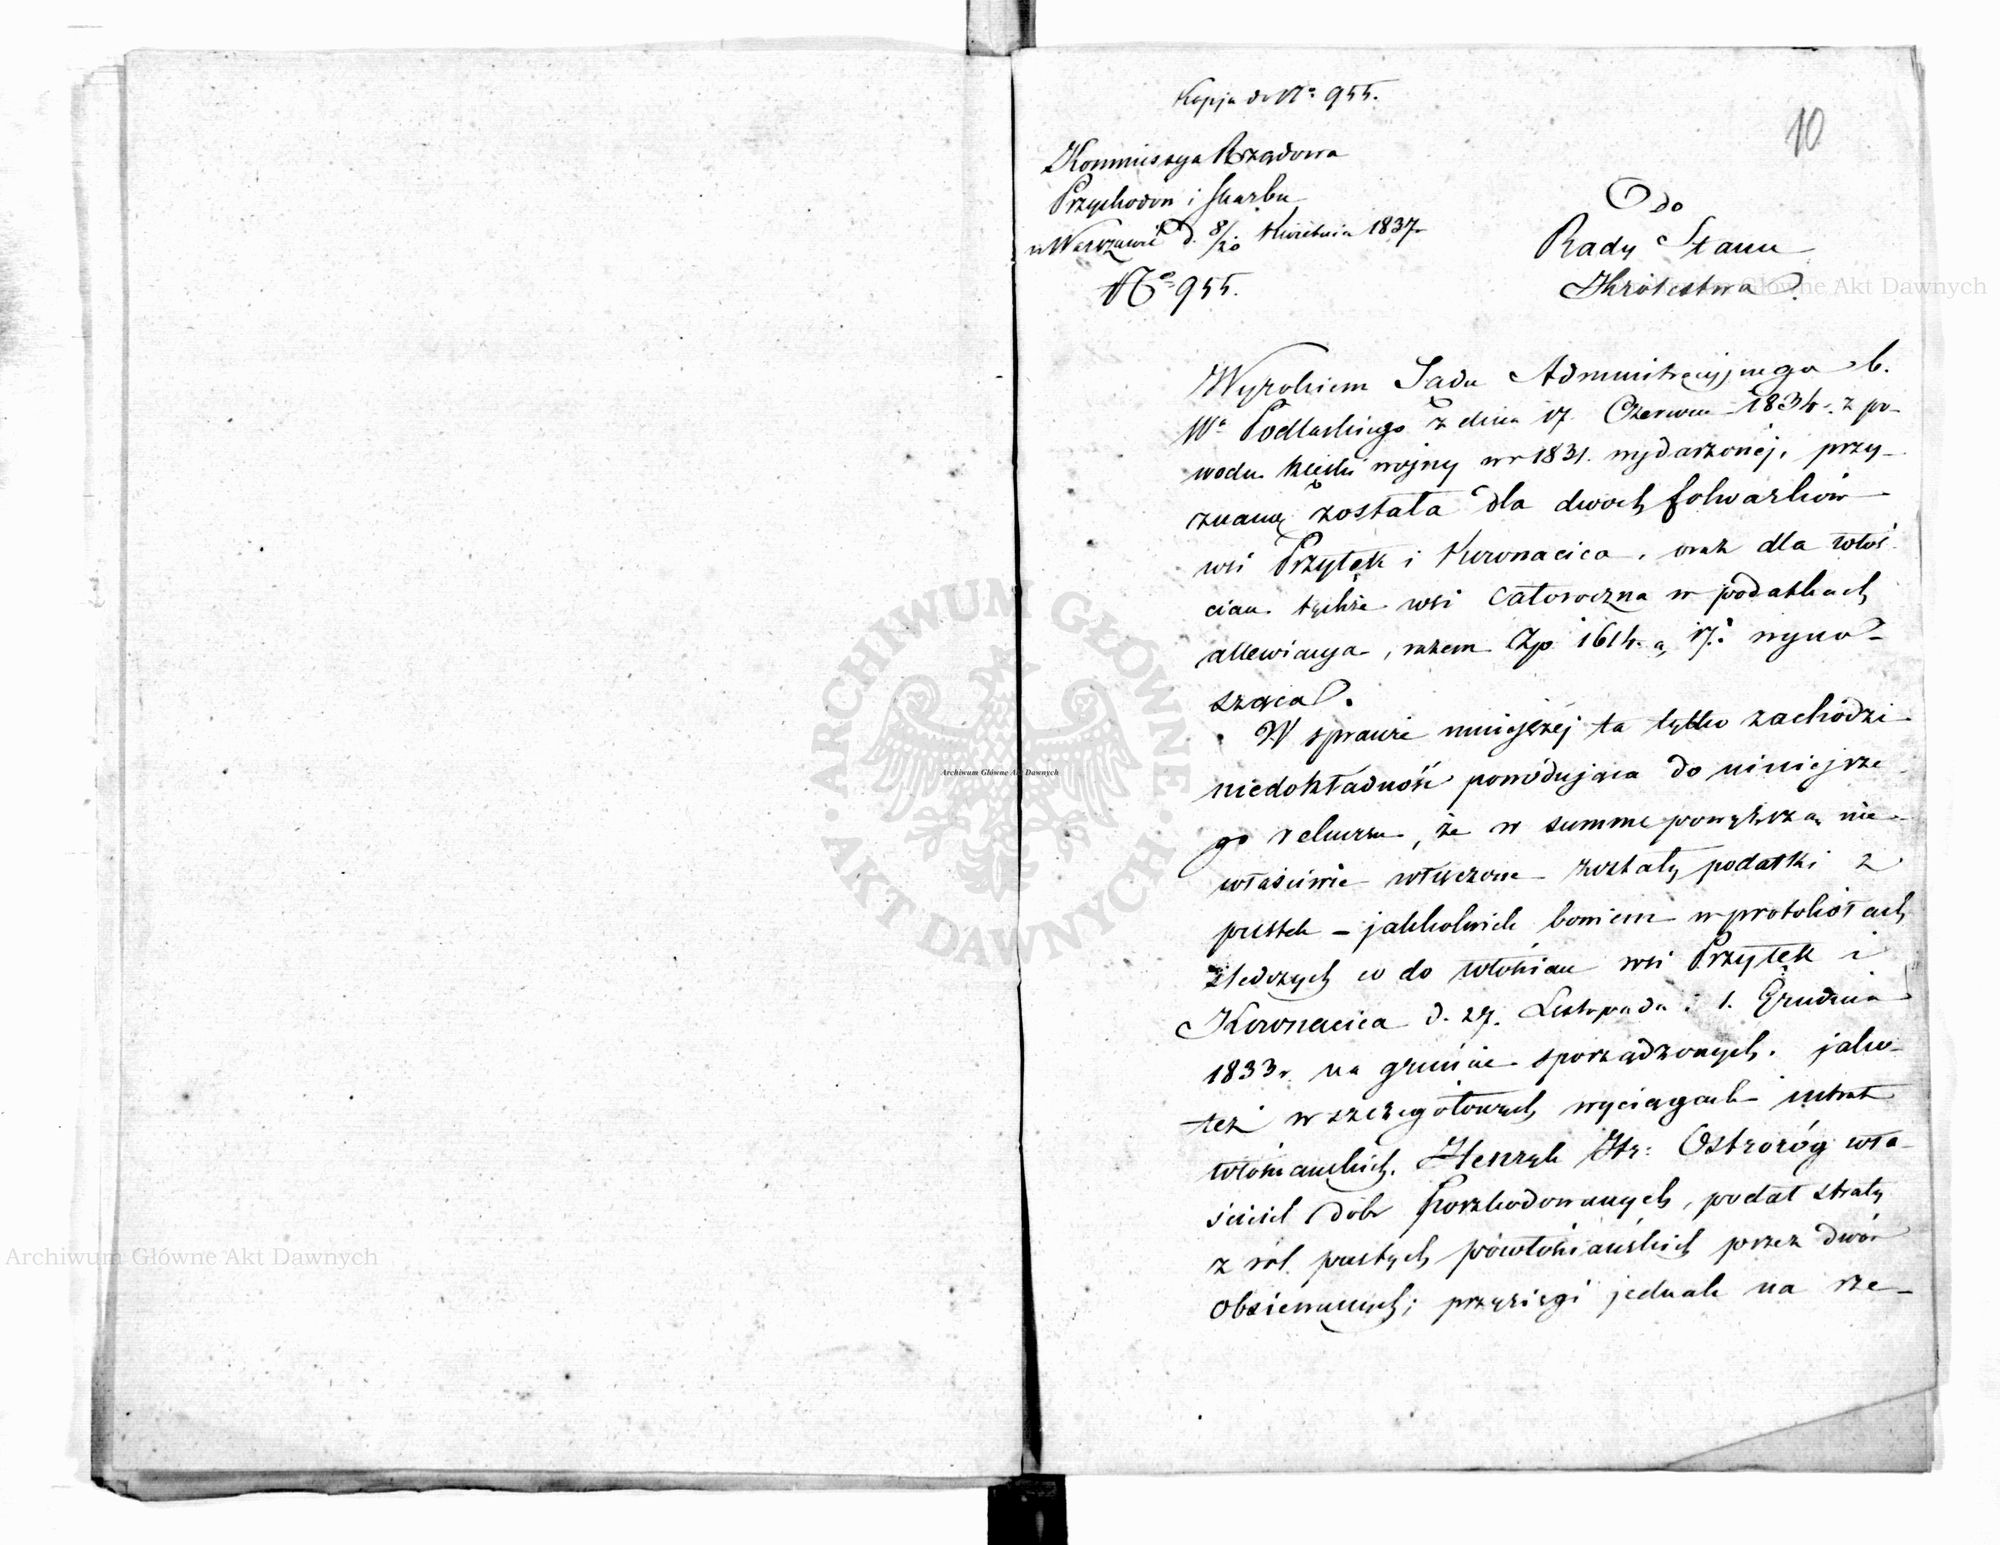 Kopja do No 955.
10
Kommissya Rządowa
Przychodow i Skarbu
w Warszawie d. 8/20 Kwietnia 1837r
No 955.
Do
Rady Stanu
Królestwa.
Wyrokiem Sądu Administracyjnego b.
Wa Podlaskiego z dnia 17. Czerwca 1834 r. z po-
wodu klęski wojny w r 1831. wydarzonéj, przy-
znaną została dla dwoch folwarków
wsi Przytek i Kownacica, oraz dla włoś-
cian tychże wsi całoroczna w podatkach
allewiacya, razem Zp. 1614. g. 17. wyno-
sząca.
W sprawie niniejszéj ta tylko zachodzi
niedokładność powodująca do niniejsze
go rekursu, że w summę powyższą nie-
właściwie włączone zostały podatki z
pustek – jakkolwiek bowiem w protokółach
śledczych co do włościan wsi Przytek i
Kownacica d. 27. Listopada i 1. Grudnia
1833 r. na gruncie sporządzonych, jako-
też w szczegółowych wyciągach intrat
włościańskich, Henryk Hr: Ostroróg wła-
ściciel dóbr poszkodowanych, podał straty
z ról pustych powłościańskich przez dwór
obsiewanych; przysięgi jednak na rze-
Archiwum Główne Akt Dawnych
Archiwum Główne Akt Dawnych
ARCHIWUM GŁÓWNE AKT DAWNYCH
Archiwum Główne Akt Dawnych